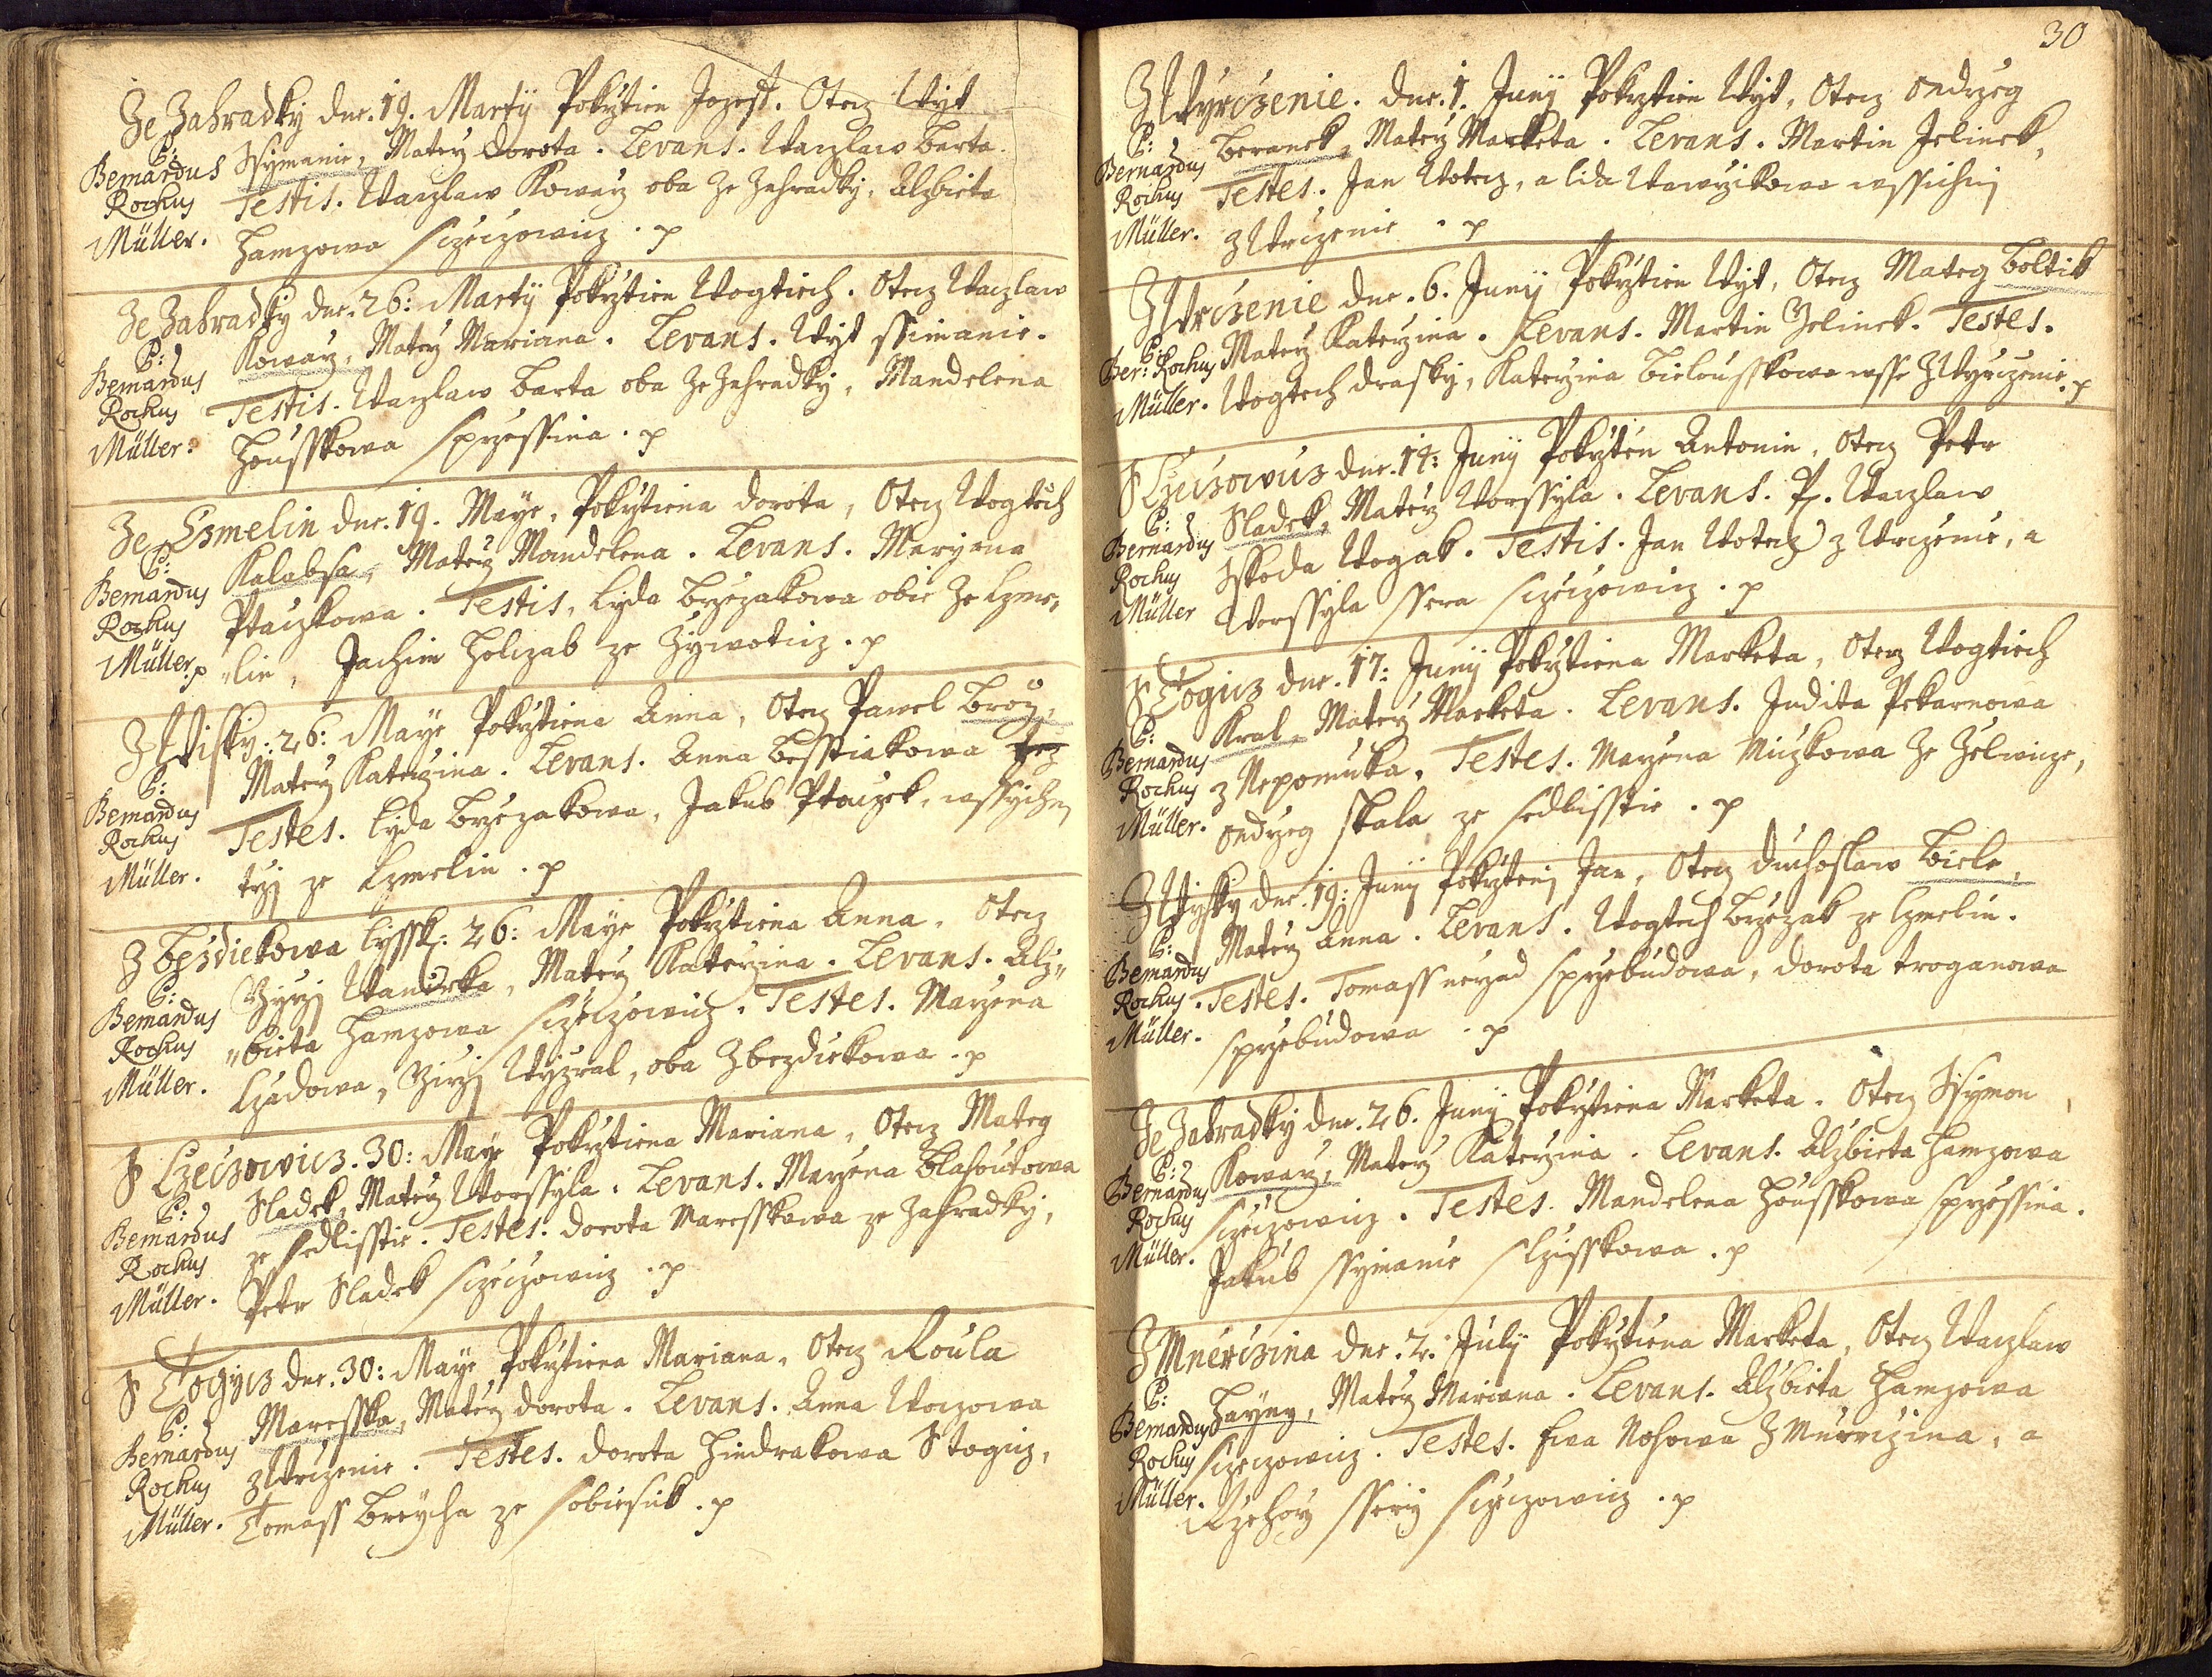 Ze Zahradky dne. 19. Martÿ Pokrztien Jozeff. Otecz Wyt
P: Bernardus Rochus Müller.
Ssymanie, Matey Dorota. Levans. Waczlaw Barta.
Testis. Waczlaw Kowarz oba ze Zahradky, Alzbieta
Hamzowa Sczeczowicz. p
Ze Zahradky dne. 26: Martÿ Pokrztien Wogtiech. Otecz Waczlaw
P: Bernardus Rochus Müller.
Kowarz, Matey Mariana. Levans. Wyt ssimanie.
Testis. Waczlaw Barta oba ze Zahradky, Mandelena
Housskowa Sprzessina. p
Ze Czmelin dne. 19. Maye, Pokrztiena Dorota, Otecz Wogtech
P: Bernardus Rochus Müller. p
Kalabsa, Matey Mandelena. Levans. Maryana
Ptaczkowa. Testis. Lyda Brzezakowa obie ze Czme,
"lin, Jachim Holczab ze Zywoticz. p
Z Wisky: 26: Maye Pokrztiena Anna, Otecz Pawel Broz,
P: Bernardus Rochus Müller.
Matey Katerzina. Levans. Anna Besstiakowa
Testes. Lyda Brzezakowa, Jakub Ptaczek, wssychnj
trzj ze Czmelin. p
Z Bezdiekowa Lyssk: 26: Maye Pokrztiena Anna. Otecz
P: Bernardus Rochus Müller.
Girzj Wanierka, Matey Katerzina. Levans. Alz"
"bieta Hamzowa Sczeczowicz. Testes. Marzena
Czadowa, Girzj Wyzral, oba Z bezdiekowa. p
S Czeczowicz. 30: Maye Pokrztiena Mariana, Otecz Mateg
P: Bernardus Rochus Müller.
Sladek, Matey Worssyla. Levans. Marzena Blahoutowa
ze Sedlisstie. Testes. Dorota Maresskowa ze Zahradky,
Petr Sladek Sczeczowicz. p
S Togycz dne. 30: Maye Pokrztiena Mariana, Otecz Roula
P: Bernardus Rochus Müller.
Maresska, Matey Dorota. Levans. Anna Woczowa
z Wrczenie. Testes. Dorota Hindrakowa S Togicz,
Tomass Breycha ze Sobiesuk. p
30
Z Wyrczenie. dne. 1. Junÿ Pokrztien Wyt, Otecz Ondrzeg
P: Bernardus Rochus Müller.
Beranek, Matey Marketa. Levans. Martin Jelinek,
Testes. Jan Wotecz, a Lida Wawrzikowa wssichnj
z Wrczenie. p
Z Wrczenie dne. 6. Junÿ Pokrztien Wyt, Otecz Mateg Boltik
P: Ber: Rochus Müller.
Matey Katerzina. Levans. Martin Jelinek. Testes.
Wogtech Drasky, Katerzina Bielousskowa wsse Z Wyrczenie. p
S Czeczowicz dne. 14: Junÿ Pokrzten Antonin, Otecz Petr
P: Bernardus Rochus Müller
Sladek, Matey Worssyla. Levans. P. Waczlaw
Sskoda Wogak. Testis. Jan Wotecz z Wrczenie, a
Worssyla Ssera Sczeczowicz. p
S Togicz dne. 17: Junÿ Pokrztiena Marketa, Otecz Wogtiech
P: Bernardus Rochus Müller.
Kral, Matey Marketa. Levans. Judita Pekarnowa
z Nepomuka. Testes. Marzena Miczkowa ze Zelwicze,
Ondrzeg Skala ze Sedlisstie. p
Z Wysky dne. 19: Junÿ Pokrztenj Jan, Otecz Duchoslaw Biele,
P: Bernardus Rochus Müller.
Matey Anna. Levans. Wogtech Brzezak ze Czmelin.
Testes. Tomass nerad Sprzebudowa, Dorota Troganowa
Sprzebudowa. p
Ze Zahradky dne. 26. Junÿ Pokrztiena Marketa. Otecz Ssymon
P: Bernardus Rochus Müller.
Kowarz, Matey Katerzina. Levans. Alzbieta Hamzowa
Sczeczowicz. Testes. Mandelena Housskowa Sprzessina.
Jakub Ssymanie Slzisskowa. p
Z Mnerczina dne. 2. Julÿ Pokrztiena Marketa, Otecz Waczlaw
P: Bernardus Rochus Müller.
Hayny, Matey Mariana. Levans. Alzbieta Hamzowa
Sczeczowicz. Testes. Ewa Nohowa Z Mnerczina, a
Rzehorz Ssery Sczeczowicz. p